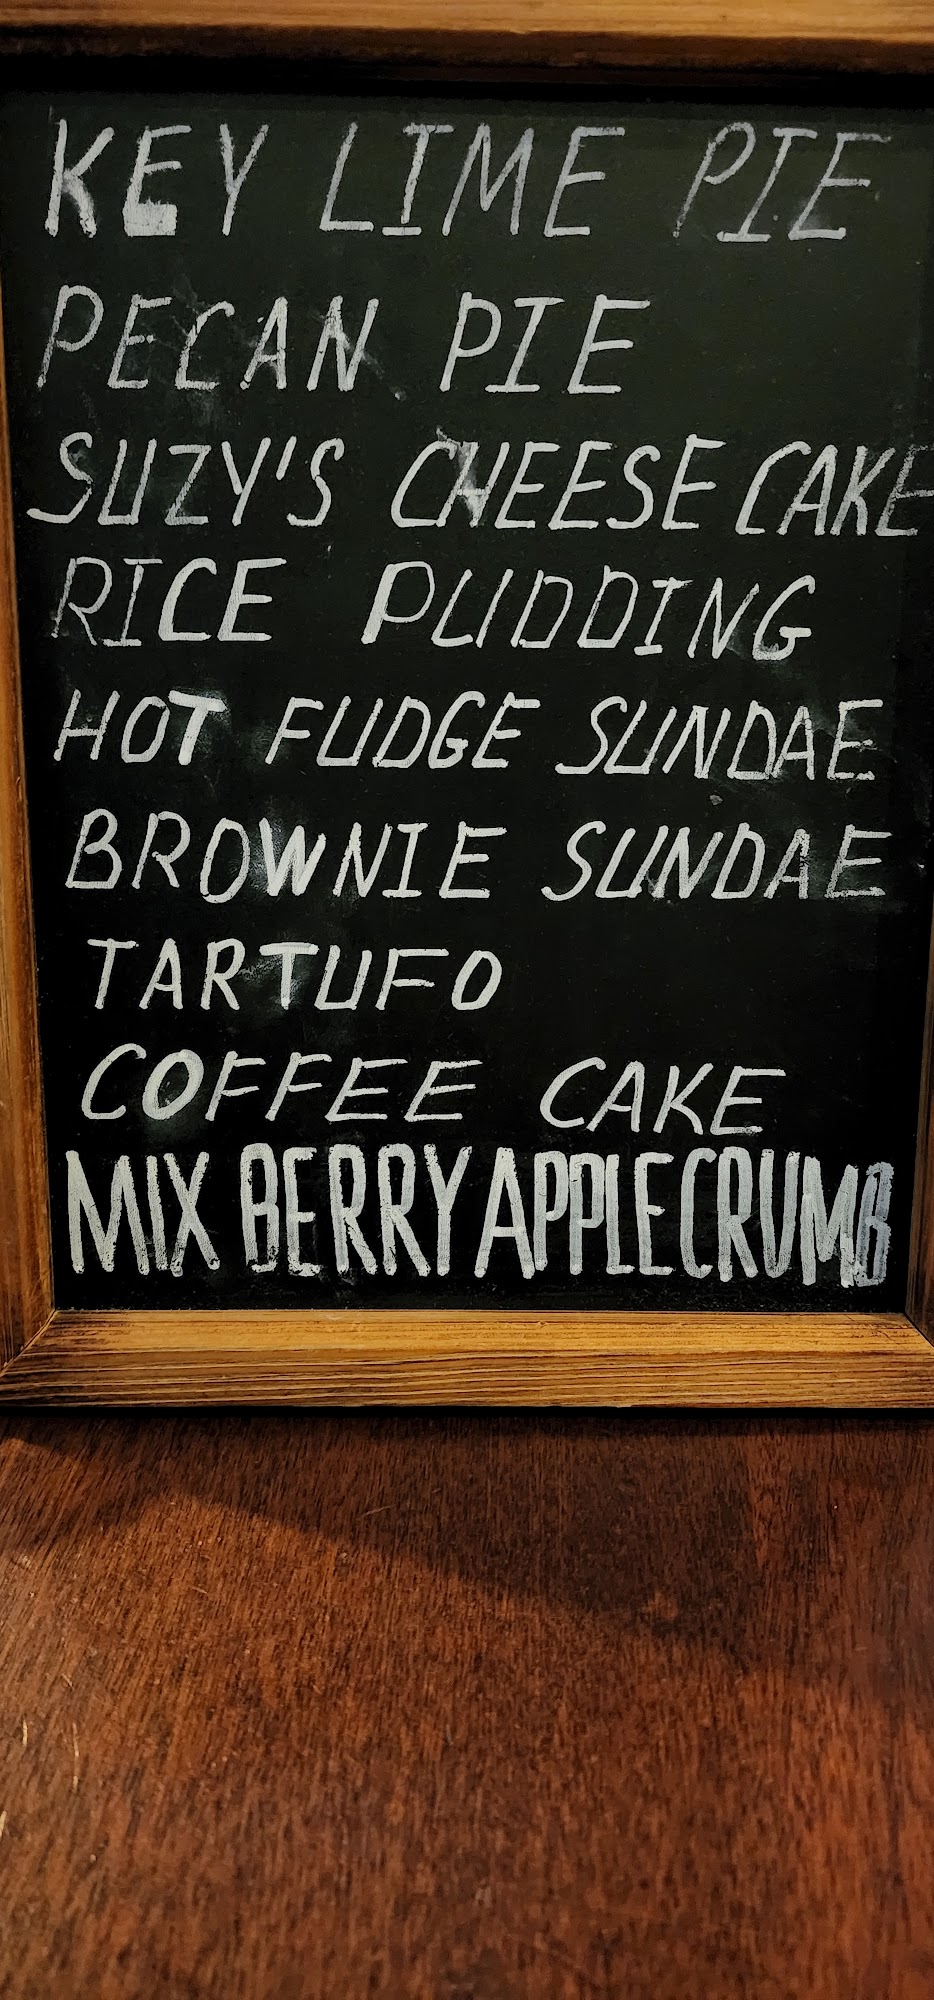 KEY LIME PIE
PECAN PIE
SUZY'S CHEESE CAKE
RICE PUDDING
HOT FUDGE SUNDAE
BROWNIE SUNDAE
TARTUFO
COFFEE CAKE
MIX BERRY APPLE CRUMB